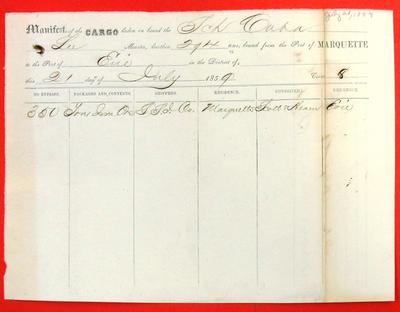 July 21, 1859
Manifest of the CARGO taken on board the Sch Cuba
Lee Master, burthen 294 tons, bound from the Port of MARQUETTE
to the Port of Erie in the District of
this 21 day of July 1859.
8
NO. ENTRIES. PACKAGES AND CONTENTS. SHIPPERS. RESIDENCE. CONSIGNEES. RESIDENCE
350 Tons Iron Ore Co. Marquette Scott & Erie